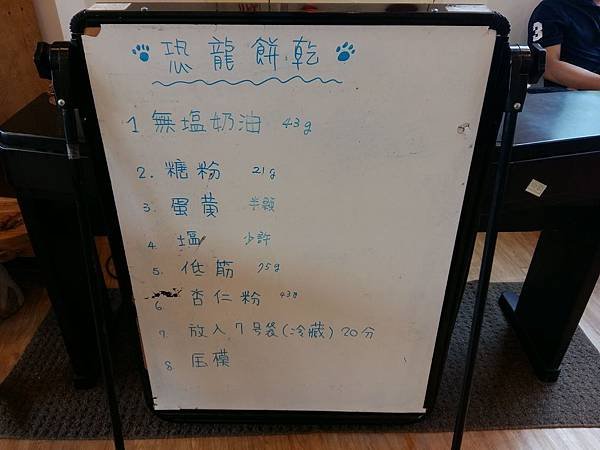 恐龍餅乾
1 無塩奶油 43g
2. 糖粉 21g
3. 蛋黄 半顆
4. 塩 少許
5. 低筋 75g
6. 杏仁粉 43g
7. 放入7号袋(冷藏) 20分
8. 压模
3